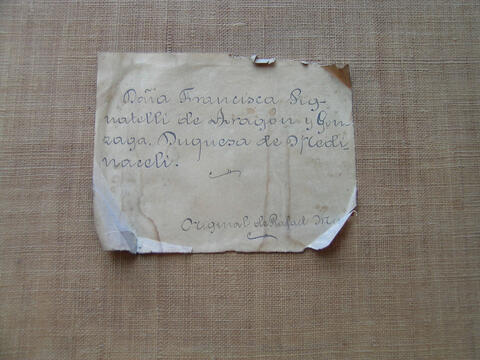 Doña Francisca Pig-
natelli de Aragón y Gon-
zaga. Duquesa de Medi-
naceli.
Original de Rafael